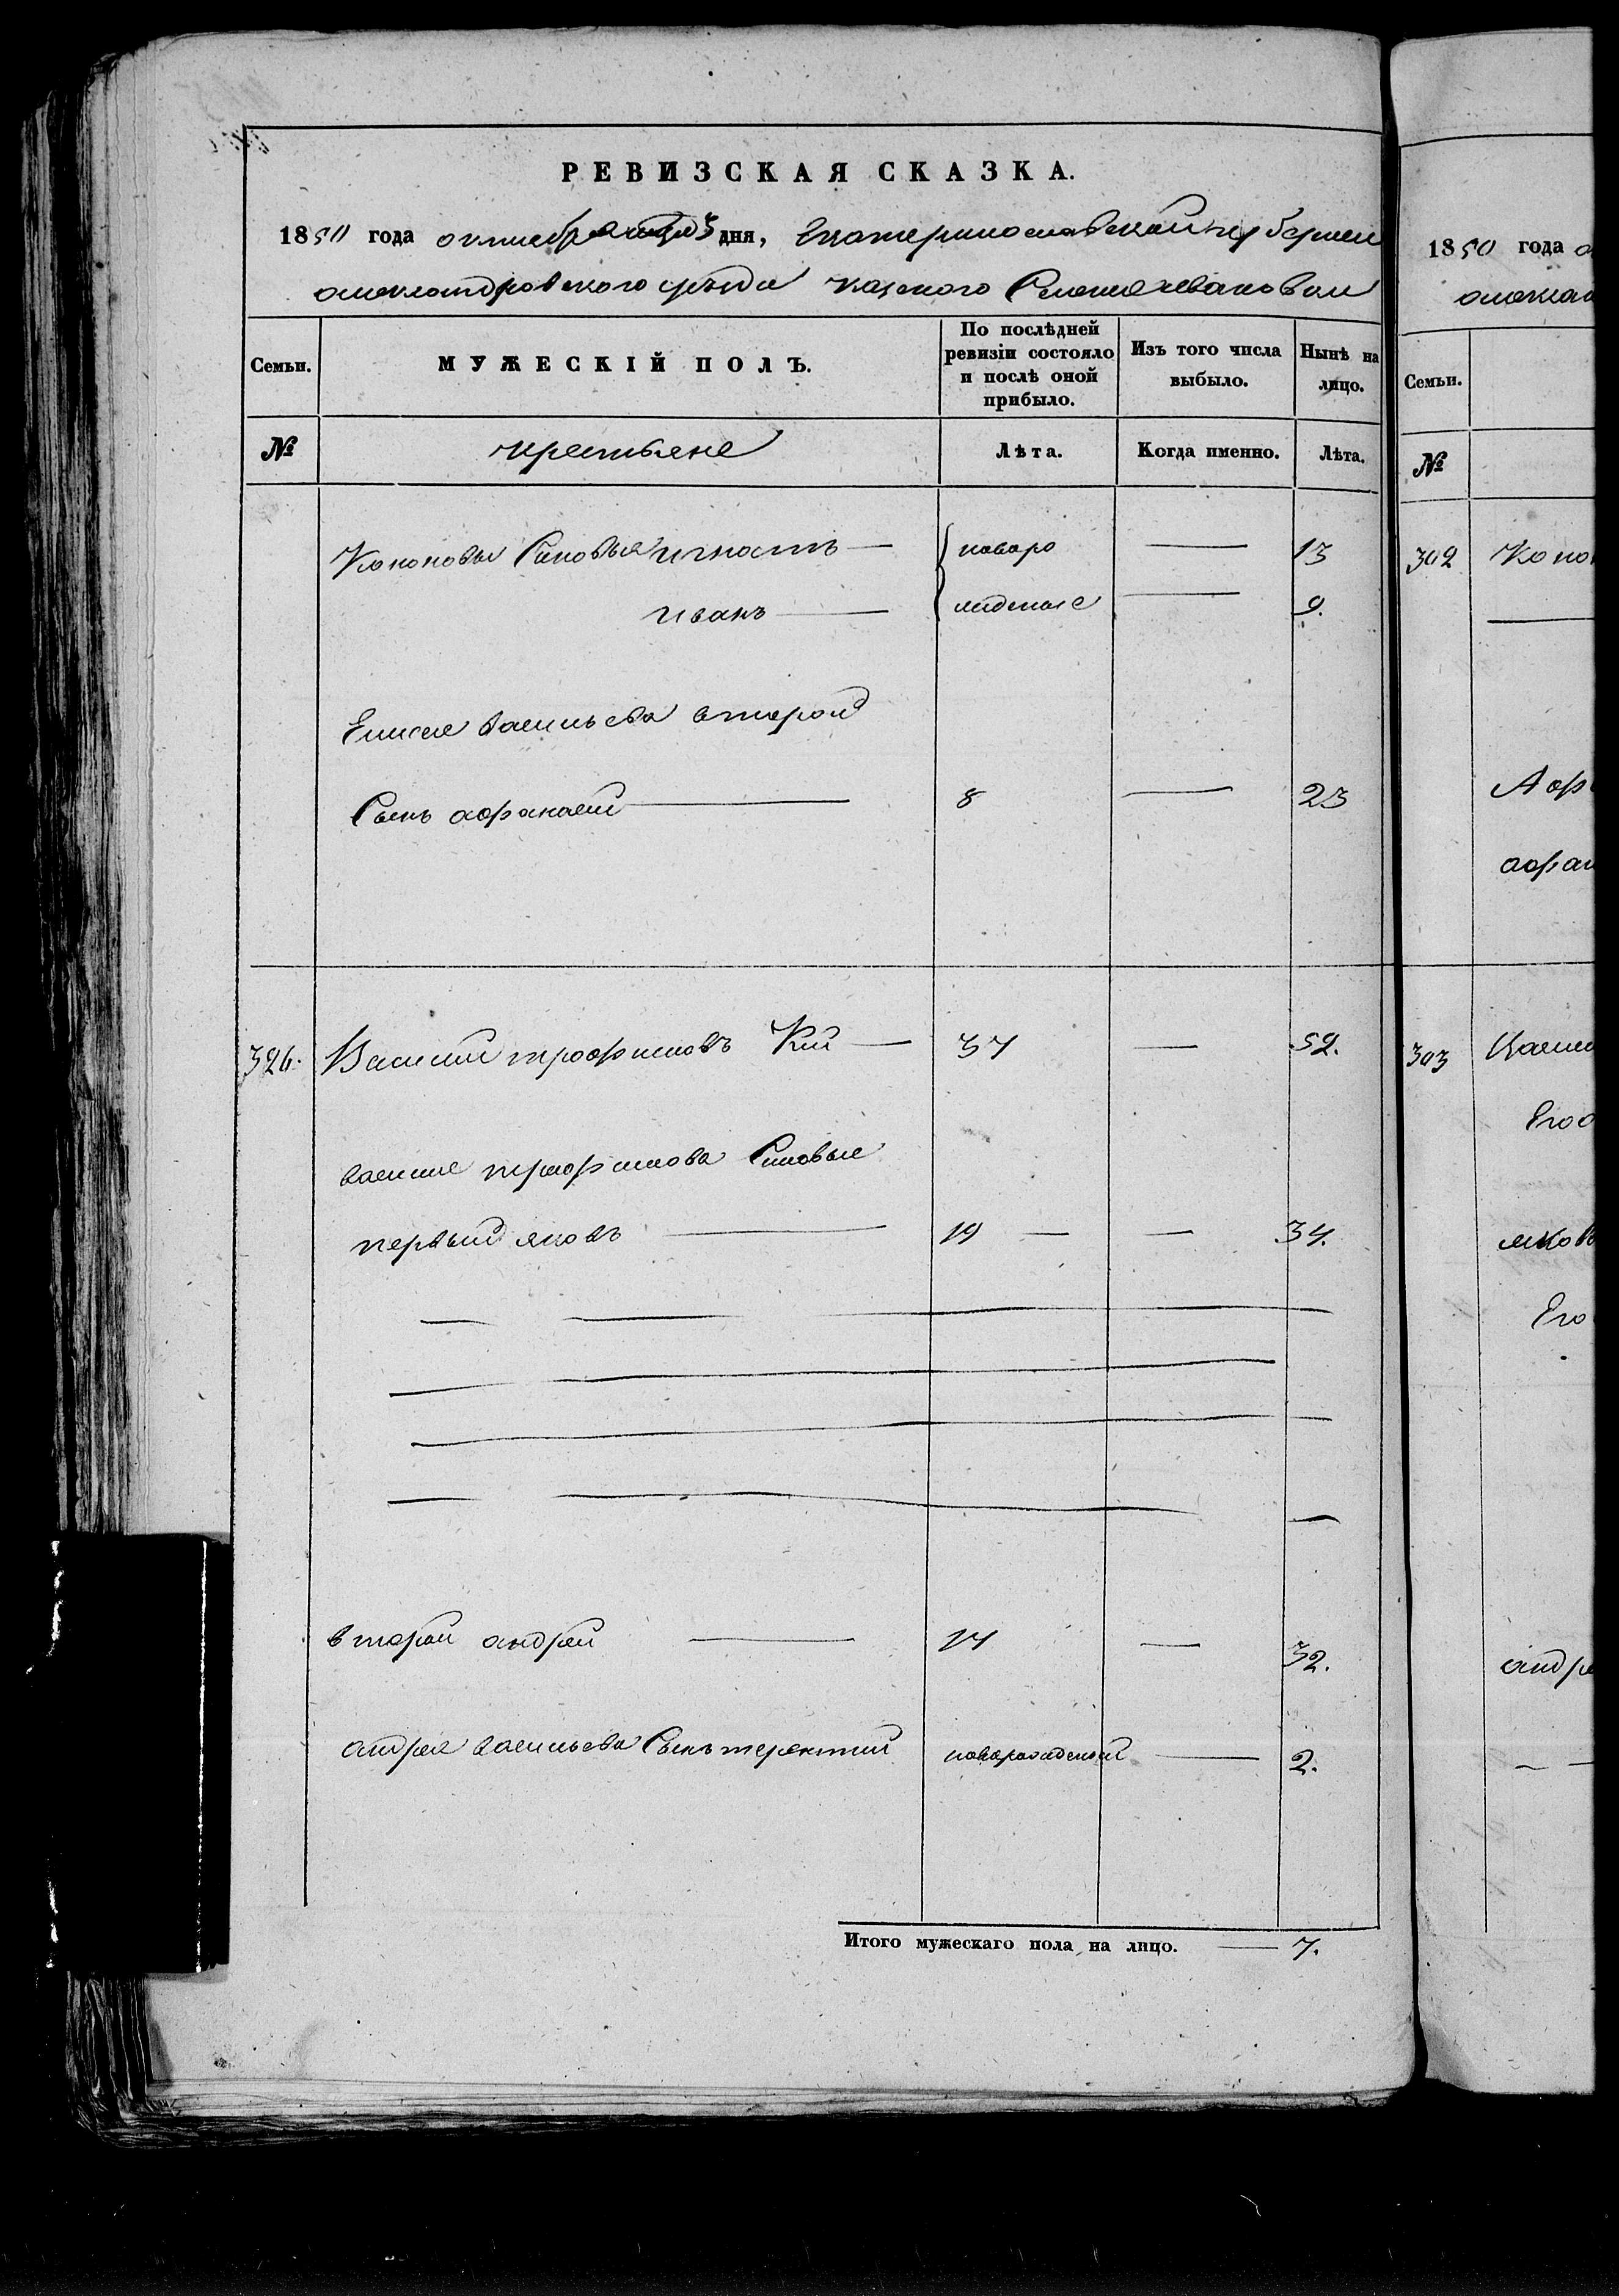 РЕВИЗСКАЯ СКАЗКА.
1850 года октября дня, Екатеринославской губернии
александровского уезда казеного Села
Семьи.
МУЖЕСКІЙ ПОЛЪ.
По послѣдней ревизіи состояло и послѣ оной прибыло.
Изъ того числа выбыло.
Нынѣ на лицо.
№
крестьяне
Лѣта.
Когда именно.
Лѣта.
Кононовы Сыновья игнатъ — наворо — 13
иванъ — жденые — 9.
Елисея васильева второй
Сынъ афанасий — 8 — 23
326. Василий трофимовъ Кий — 37 — 52.
василия трофимова Сыновья
первый яковъ — 19 — — 34.
второй андрей — 17 — 32.
андрея васильева Сынъ терентий новорожденый — 2.
Итого мужескаго пола на лицо. — 7.
1850 года
Семьи.
№
302
303
Его
яковъ
Его